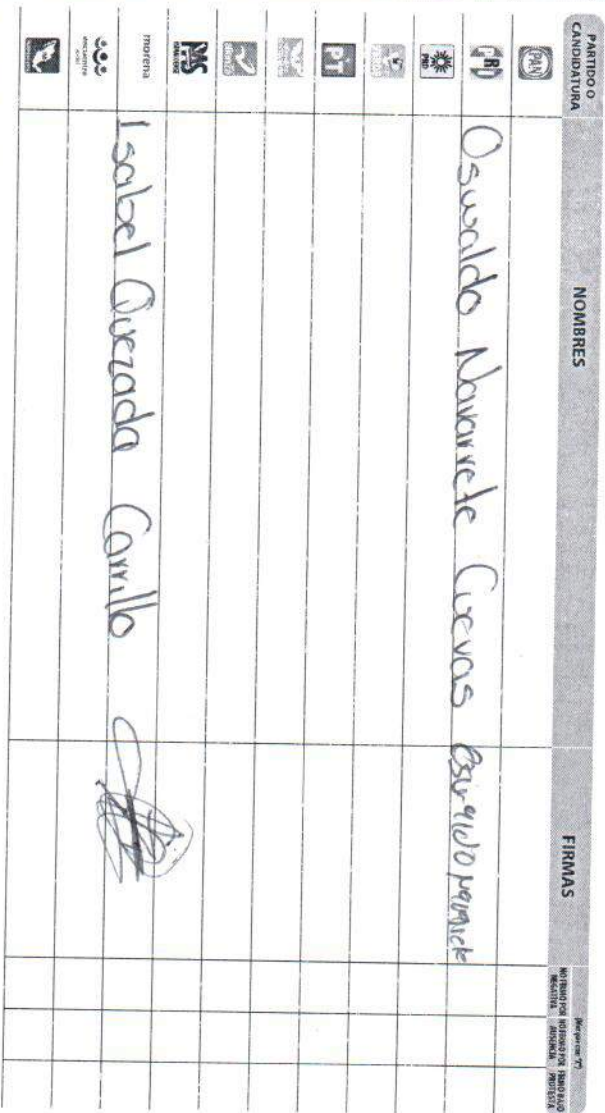 PARTIDO O CANDIDATURA NOMBRES FIRMAS NO FIRMÓ POR NEGATIVA NO FIRMÓ POR AUSENCIA FIRMÓ BAJO PROTESTA
PAN
PRI Oswaldo Navarrete Cuevas
PRD
VERDE
PT
PAS
morena Isabel Quezada Carrillo
encuentro social